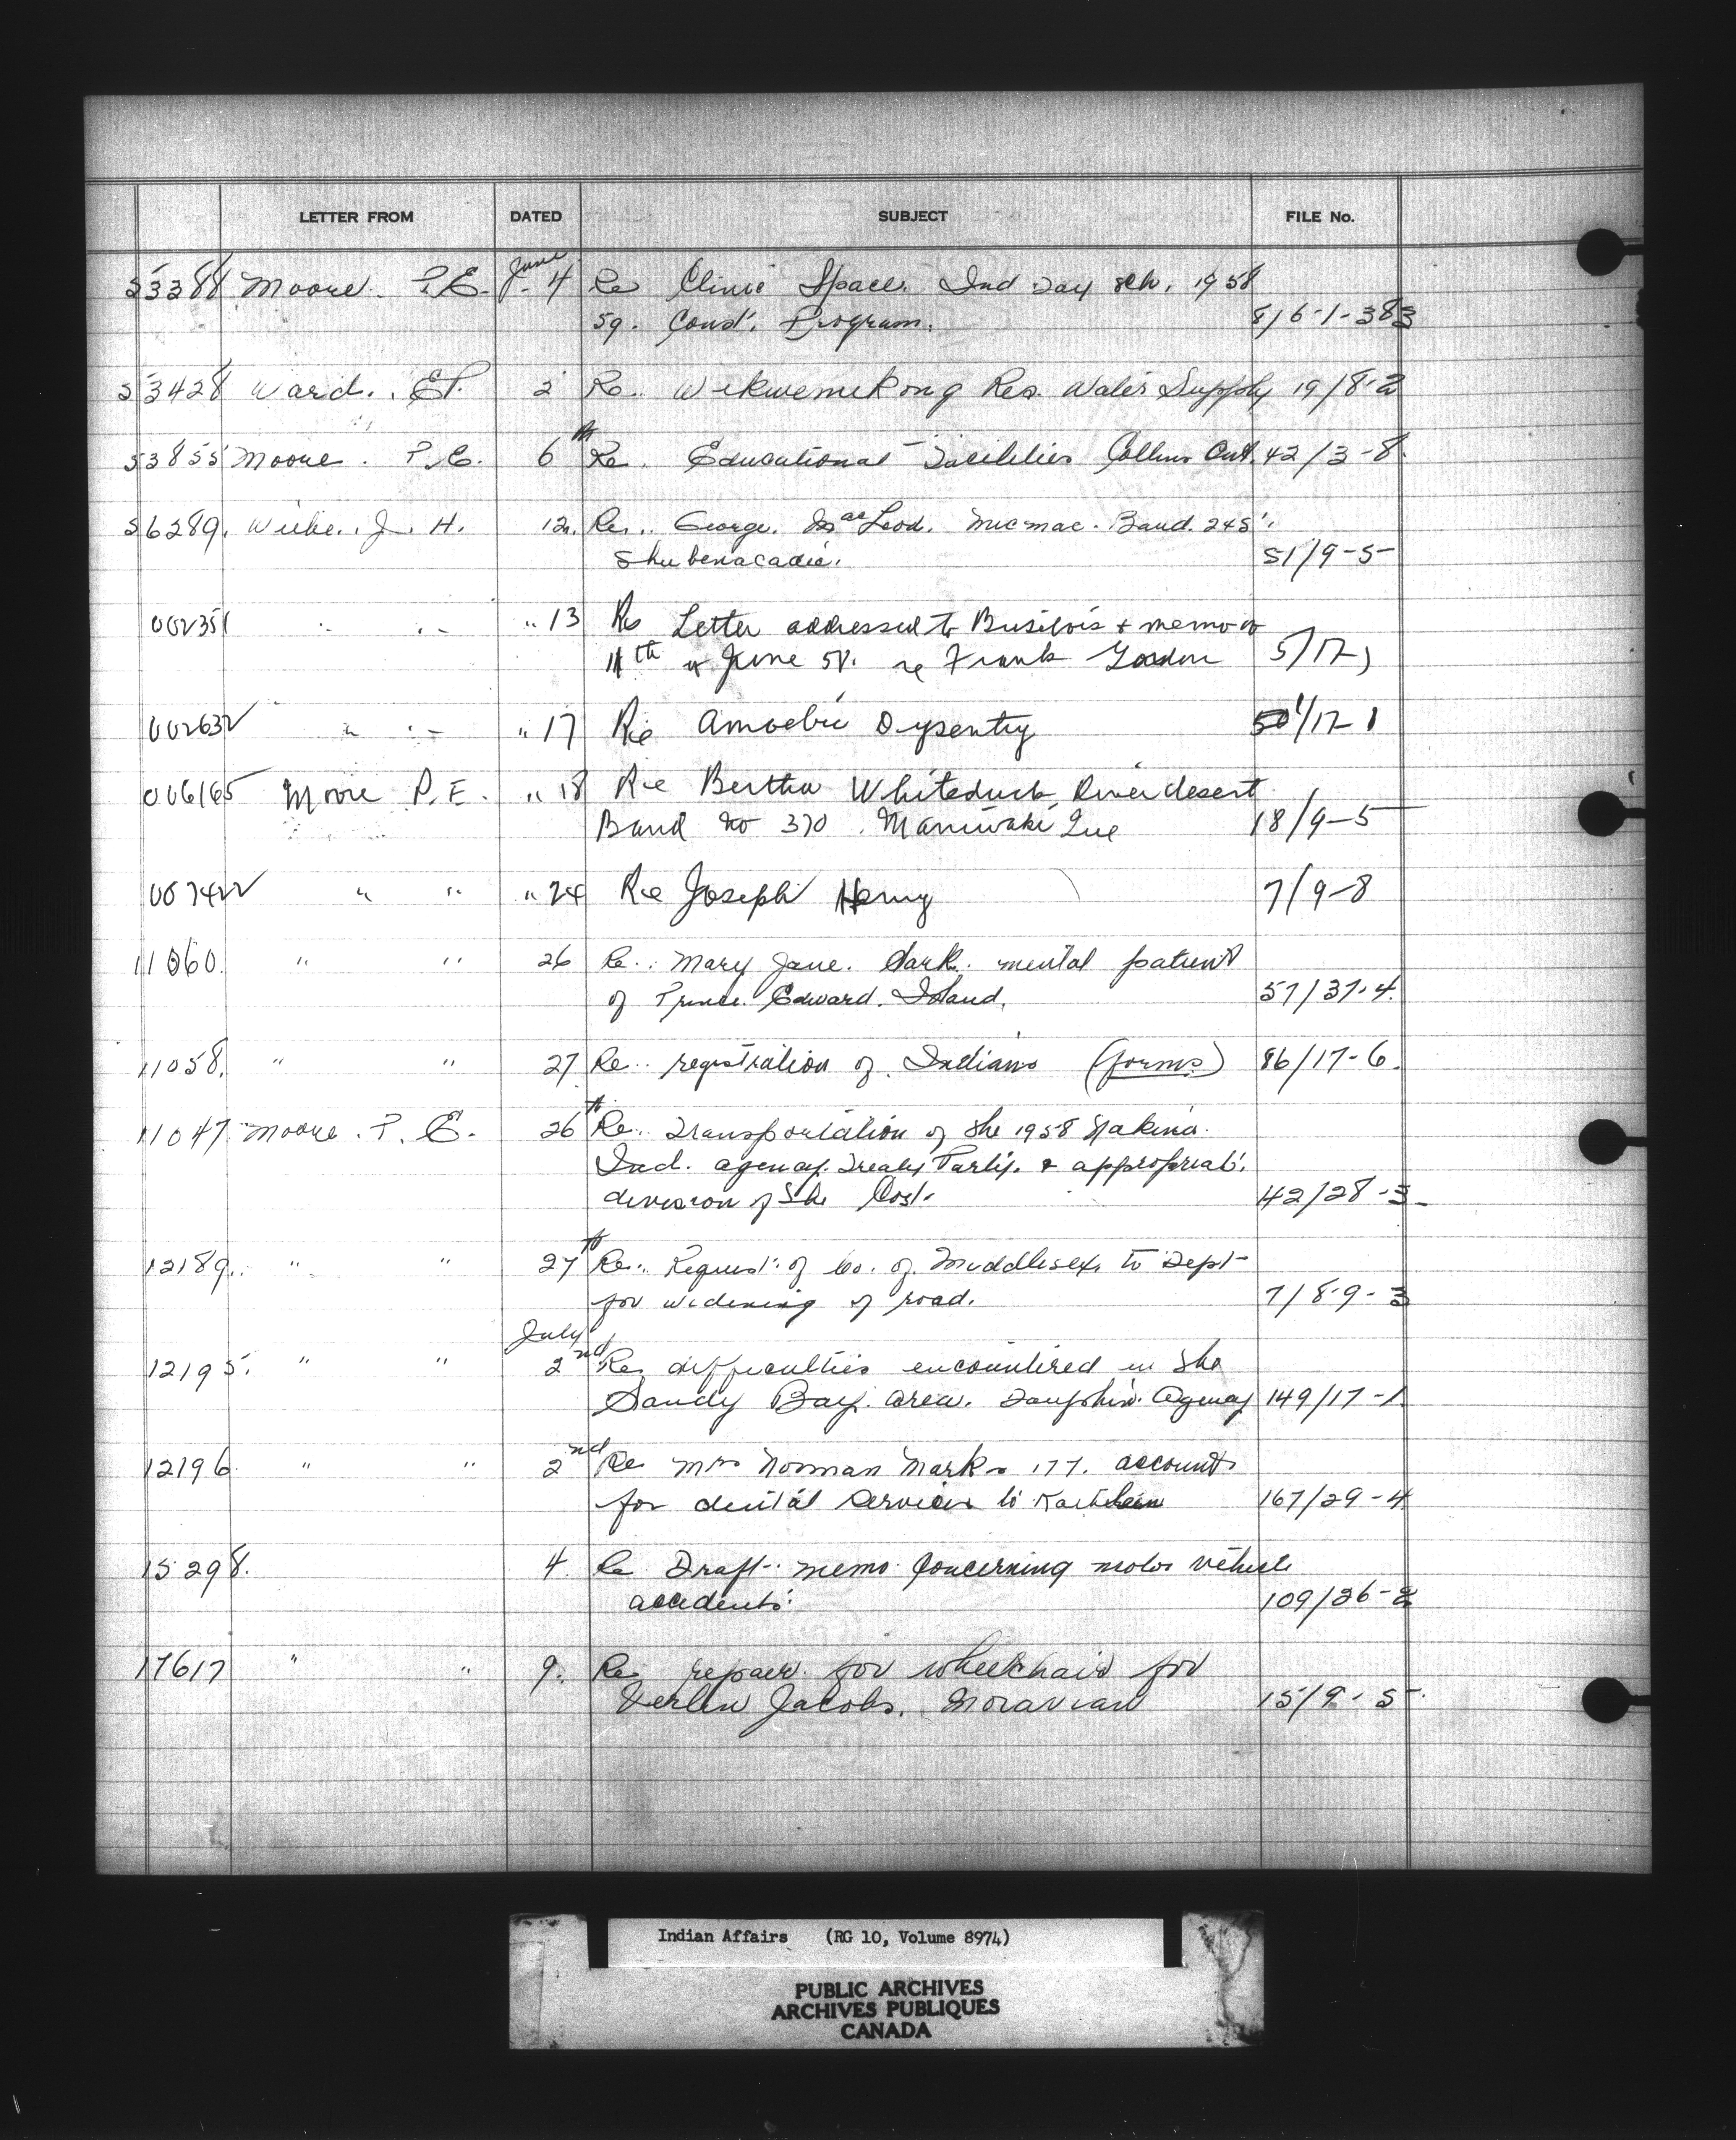 LETTER FROM DATED SUBJECT FILE No.
53388 Moore. P.E. June 4 Re Clinic Space. Ind Day Sch. 1958
59. Const. Program. 816-1-383
53428 Ward. E.P. 2 Re. Wekwemekong Res. Water Supply 19/8-2
53855 Moore. P.E. 6th Re. Educational Facilities Collins Ont. 42/3-8.
56289. Wiebe. J. H. 12. Re. George. MacLeod. Micmac. Band. 245.
Shubenacadie. 51/9-5
002351 " " " 13 Re Letter addressed to & memo of
11th of June 58. re Frank 5/17-1
002632 " " " 17 Re Amoebic Dysentry 1/17-1
006165 Moore P.E. " 18 Re Bertha Whiteduck, River desert
Band No 370. Maniwaki Que 18/9-5
007422 " " " 24 Re Joseph Henry 7/9-8
11060. " " 26 Re. Mary Jane. Sark. mental patient
of Prince. Edward. Island. 57/37-4.
11058. " " 27 Re. registration of Indians (forms) 86/17-6.
11047. Moore. P. E. 26th Re. Transportation of the 1958 Nakina.
Ind. agency. Treaty Party. & appropriat.
division of the Cost. 42/28-3
12189. " " 27th Re. Request of Co. of Middlesex to Dept
for widening of road. 7/8-9-3
July
12195. " " 2nd Re difficulties encountered in the
Sandy Bay. area. Dauphin. Agency 149/17-1
12196 " " 2nd Re Mrs Norman Marks 177. account
for dental services to Kathleen 167/29-4
15298. 4. Re Draft memo Concerning motor vehicle
accidents. 109/26-2
17617 " " 9. Re repair for wheelchair for
Verlin Jacobs. Moravian 15/9-5
Indian Affairs (RG 10, Volume 8974)
PUBLIC ARCHIVES
ARCHIVES PUBLIQUES
CANADA